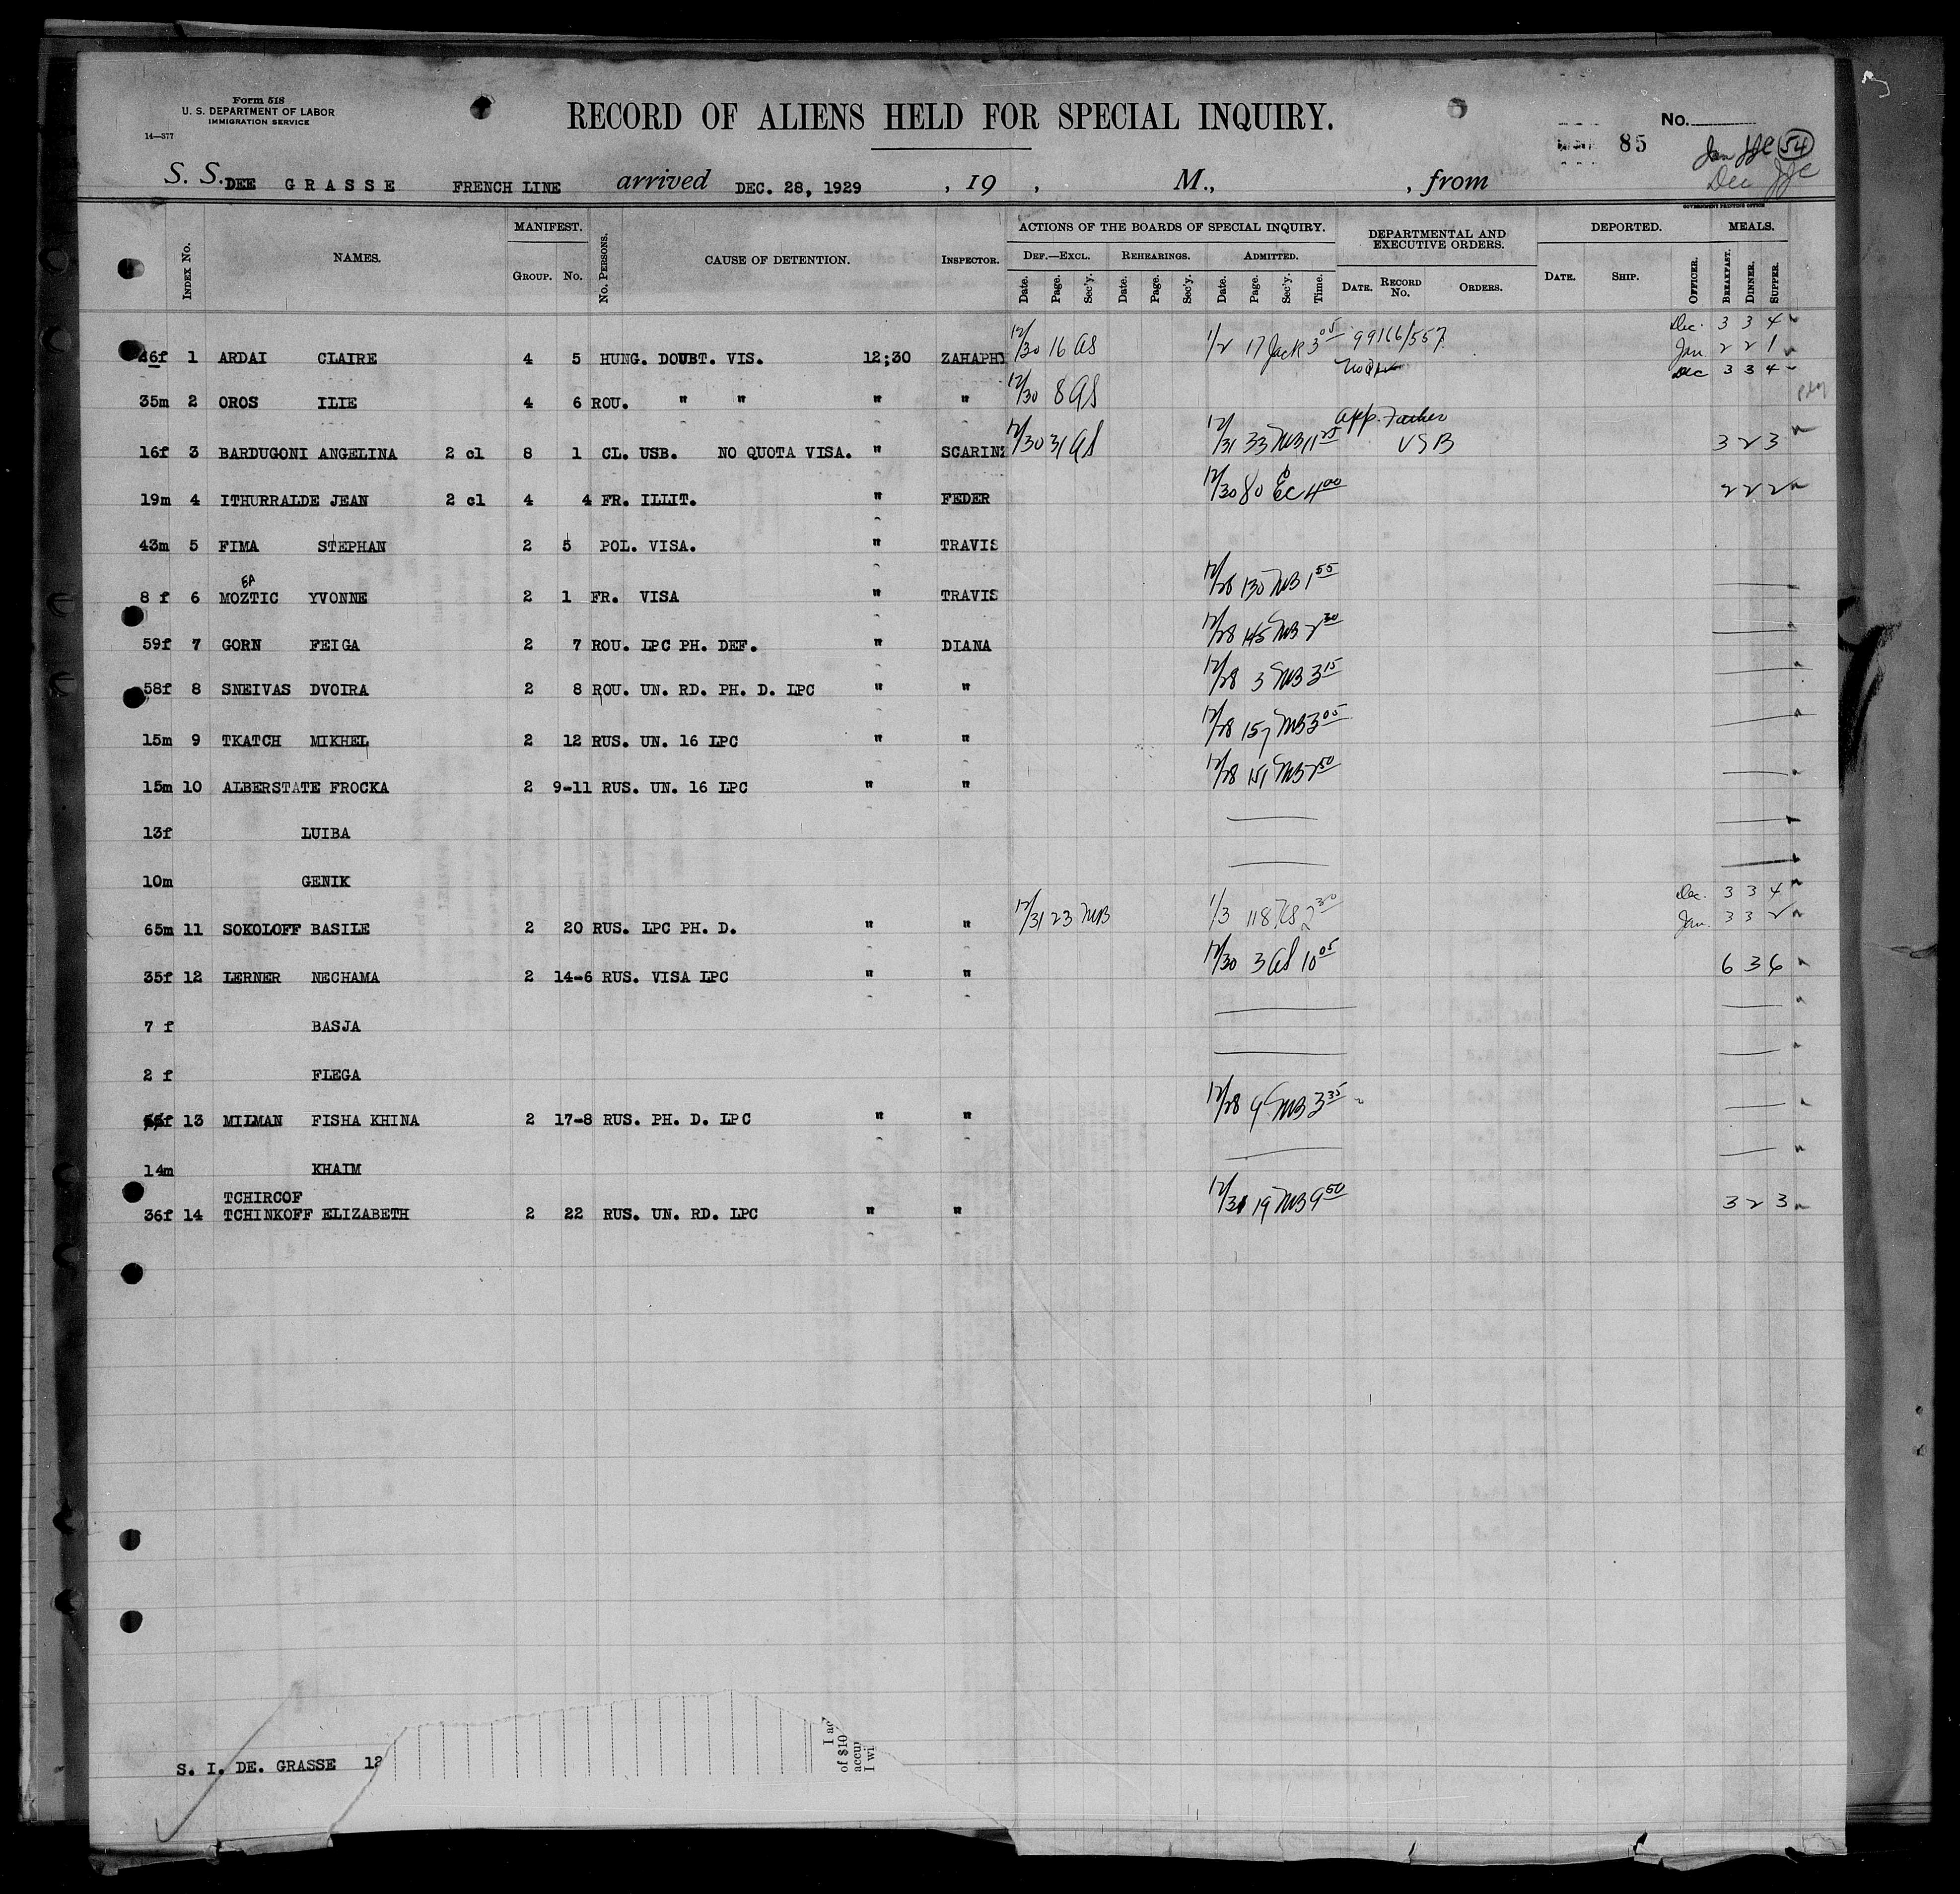 Form 518
U. S. DEPARTMENT OF LABOR
IMMIGRATION SERVICE
14—377
RECORD OF ALIENS HELD FOR SPECIAL INQUIRY.
No.
85
Jan JJC 54
Dec JJC
S. S. DEE GRASSE FRENCH LINE arrived DEC. 28, 1929 , 19 , M., , from
GOVERNMENT PRINTING OFFICE
INDEX No. NAMES. MANIFEST. No. PERSONS. CAUSE OF DETENTION. INSPECTOR. ACTIONS OF THE BOARDS OF SPECIAL INQUIRY. DEPARTMENTAL AND EXECUTIVE ORDERS. DEPORTED. MEALS.
GROUP. No. DEF.—EXCL. REHEARINGS. ADMITTED. DATE. RECORD No. ORDERS. DATE. SHIP. OFFICER. BREAKFAST. DINNER. SUPPER.
Date. Page. Sec'y. Date. Page. Sec'y. Date. Page. Sec'y. Time.
Dec. 3 3 4
26f 1 ARDAI CLAIRE 4 5 HUNG. DOUBT. VIS. 12;30 ZAHAPHY 12/30 16 AS 1/2 17 Jack 3 05 99166/557 Jan. 2 2 1
Dec 3 3 4
35m 2 OROS ILIE 4 6 ROU. " " " " 12/30 8 AS
app. Father
16f 3 BARDUGONI ANGELINA 2 cl 8 1 CL. USB. NO QUOTA VISA. " SCARINZ 12/30 31 AS 12/31 33 MB 11 25 USB 3 2 3
19m 4 ITHURRALDE JEAN 2 cl 4 4 FR. ILLIT. " FEDER 12/30 80 EC 4 00 2 2 2
43m 5 FIMA STEPHAN 2 5 POL. VISA. " TRAVIS
8 f 6 MOZTIC YVONNE 2 1 FR. VISA " TRAVIS 12/28 130 MB 1 55
59f 7 GORN FEIGA 2 7 ROU. LPC PH. DEF. " DIANA 12/28 145 MB 2 30
58f 8 SNEIVAS DVOIRA 2 8 ROU. UN. RD. PH. D. LPC " " 12/28 3 MB 3 15
15m 9 TKATCH MIKHEL 2 12 RUS. UN. 16 LPC " " 12/28 157 MB 3 05
15m 10 ALBERSTATE FROCKA 2 9-11 RUS. UN. 16 LPC " " 12/28 151 MB 2 50
13f LUIBA
10m GENIK
Dec. 3 3 4
65m 11 SOKOLOFF BASILE 2 20 RUS. LPC PH. D. " " 12/31 23 MB 1/3 118 KS 2 30 Jan. 3 3 2
35f 12 LERNER NECHAMA 2 14-6 RUS. VISA LPC " " 12/30 3 AS 10 05 6 3 6
7 f BASJA
2 f FLEGA
f 13 MILMAN FISHA KHINA 2 17-8 RUS. PH. D. LPC " " 12/28 9 MB 3 35
14m KHAIM
TCHIRCOF
36f 14 TCHINKOFF ELIZABETH 2 22 RUS. UN. RD. LPC " " 12/31 19 MB 9 50 3 2 3
S. I. DE. GRASSE 12
I ac
of $10
accu
I wi